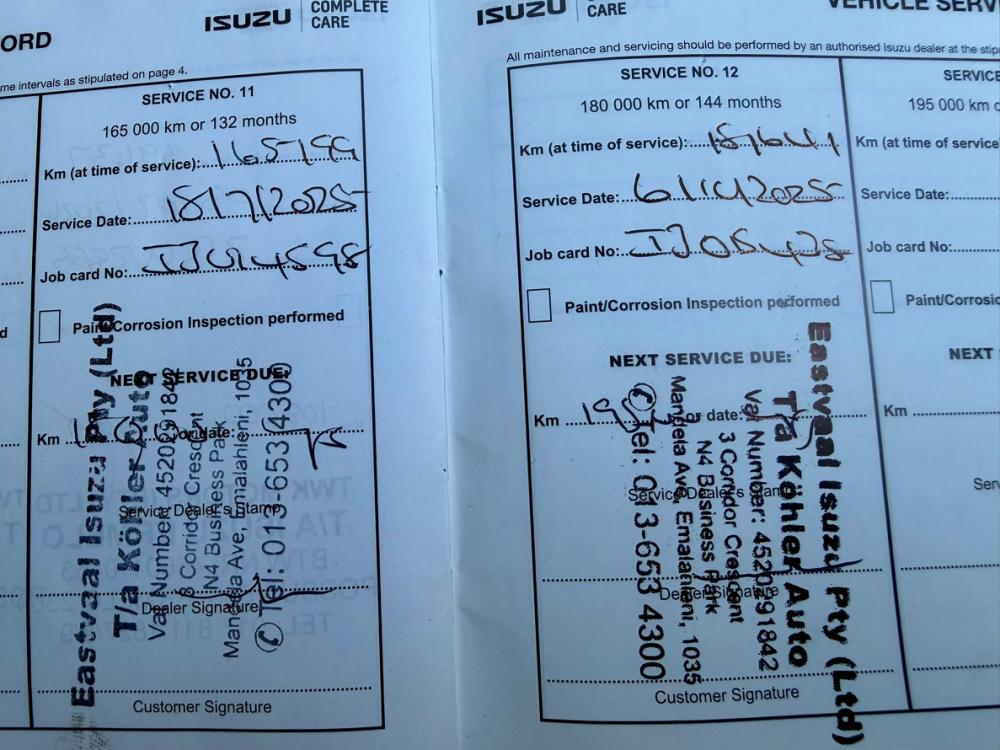 ORD
ISUZU
COMPLETE
CARE
me intervals as stipulated on page 4.
SERVICE NO. 11
165 000 km or 132 months
Km (at time of service):
Service Date: 18/7/2025
Job card No:
Paint/Corrosion Inspection performed
NEXT SERVICE DUE:
Km
or date:
Service Dealer's Stamp
Dealer Signature
Customer Signature
Eastvaal Isuzu Pty (Ltd)
T/a Köhler Auto
Vat Number: 4520291842
3 Corridor Crescent
N4 Business Park
Mandela Ave, Emalahleni, 1035
Tel: 013-653 4300
ISUZU
CARE
VEHICLE SERV
All maintenance and servicing should be performed by an authorised Isuzu dealer at the stip
SERVICE NO. 12
180 000 km or 144 months
Km (at time of service):
Service Date:
Job card No:
Paint/Corrosion Inspection performed
NEXT SERVICE DUE:
Km
or date:
Service Dealer's Stamp
Dealer Signature
Customer Signature
Eastvaal Isuzu Pty (Ltd)
T/a Köhler Auto
Vat Number: 4520291842
3 Corridor Crescent
N4 Business Park
Mandela Ave, Emalahleni, 1035
Tel: 013-653 4300
SERVICE
195 000 km o
Km (at time of service
Service Date:
Job card No:
Paint/Corrosio
NEXT
Km
Serv